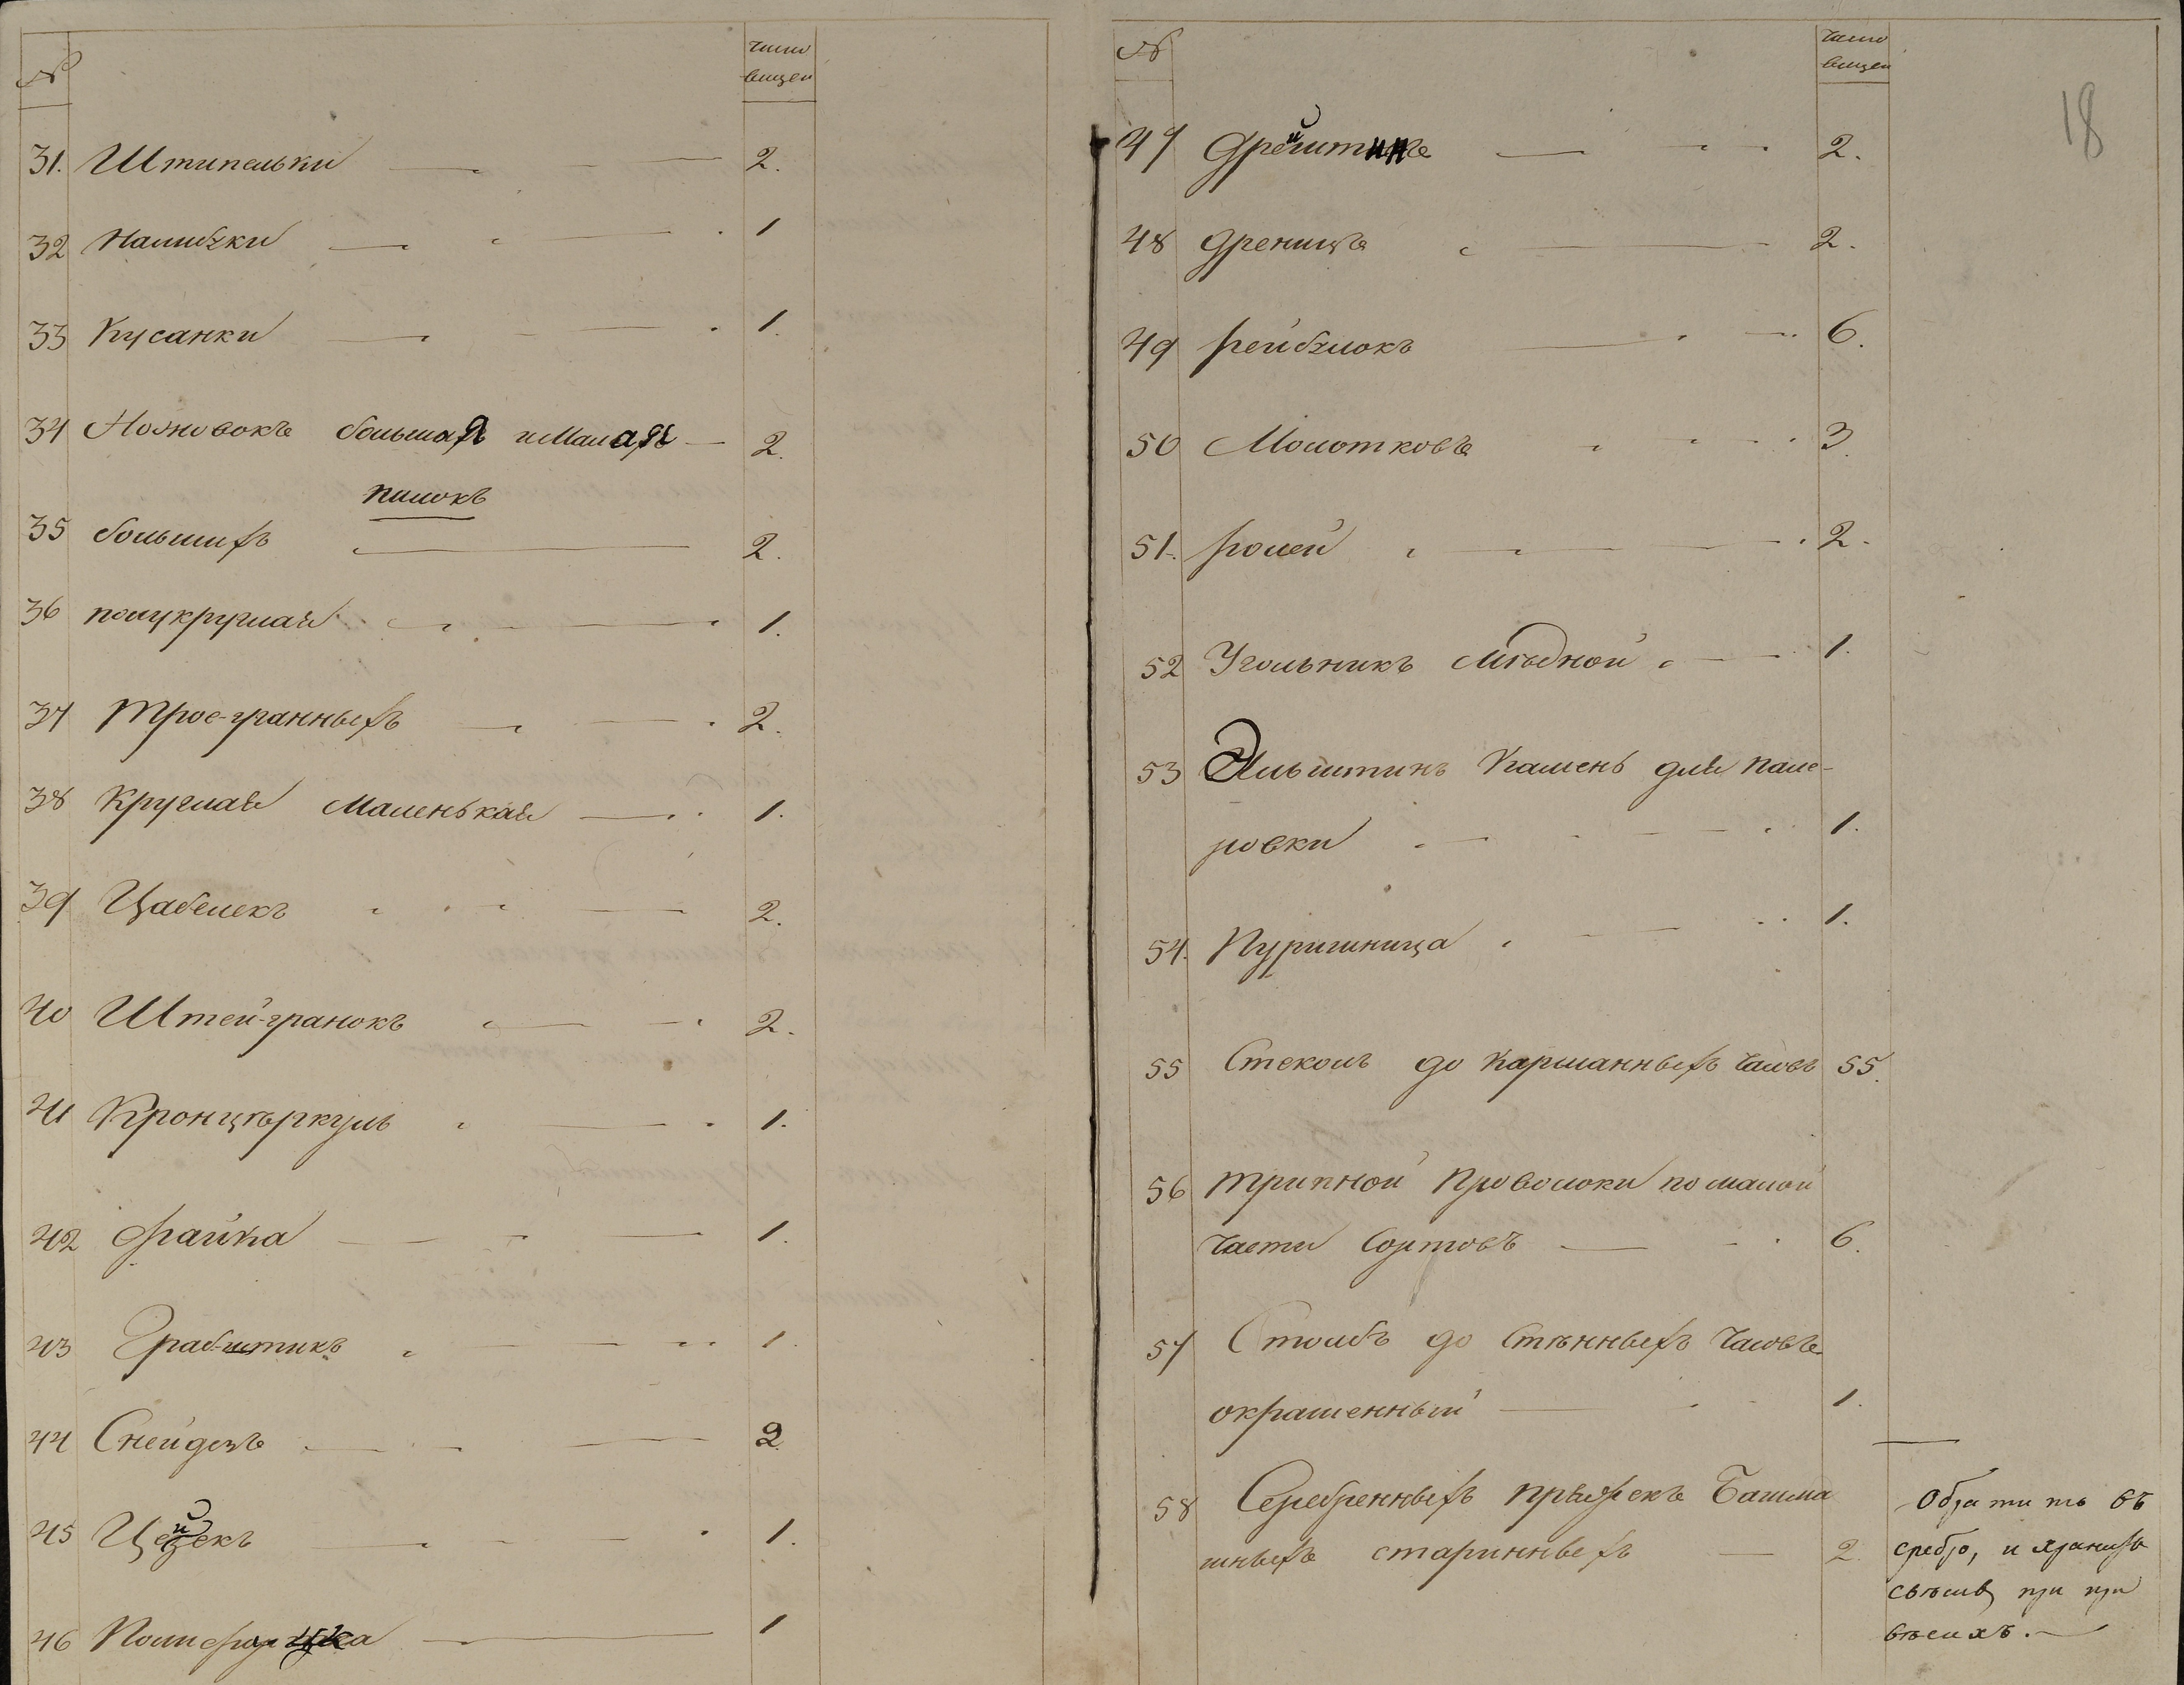 №
число
вещеи
31. Штипельки 2.
32 Налибки 1
33 Кусанки 1.
34 Ножновокъ большая и Малая 2.
пилокъ
35 большихъ 2.
36 полукруглая 1.
37 Трое-гранныхъ 2.
38 Круглая Маленькая 1.
39 Цабелекъ 2.
40 Штей-гранокъ 2.
41 Кронцѣркуль 1.
42 Файка 1.
43 Граб-штикъ 1.
44 Снейдезъ 2
45 Цейекъ 1.
46 1
№
число
вещеи
18
47 2.
48 Дреницъ 2.
49 рейбалокъ 6.
50 Молотковъ 3.
51. ролей 2.
52 Угольникъ Мѣдной 1.
53 Эльштинъ Камень для Поле-
ровки 1.
54. Пуришница 1.
55 Стеколъ до Карманныхъ часовъ 55.
56 трипной Проволоки по малой
части Сортовъ 6.
57 Столбъ до Стѣнныхъ Часовъ
окрашенный 1.
58 Серебренныхъ пряжекъ Башма
шныхъ старинныхъ 2
Обратить въ
сребро, и хранить
свѣсивъ при при
вѣсихъ.